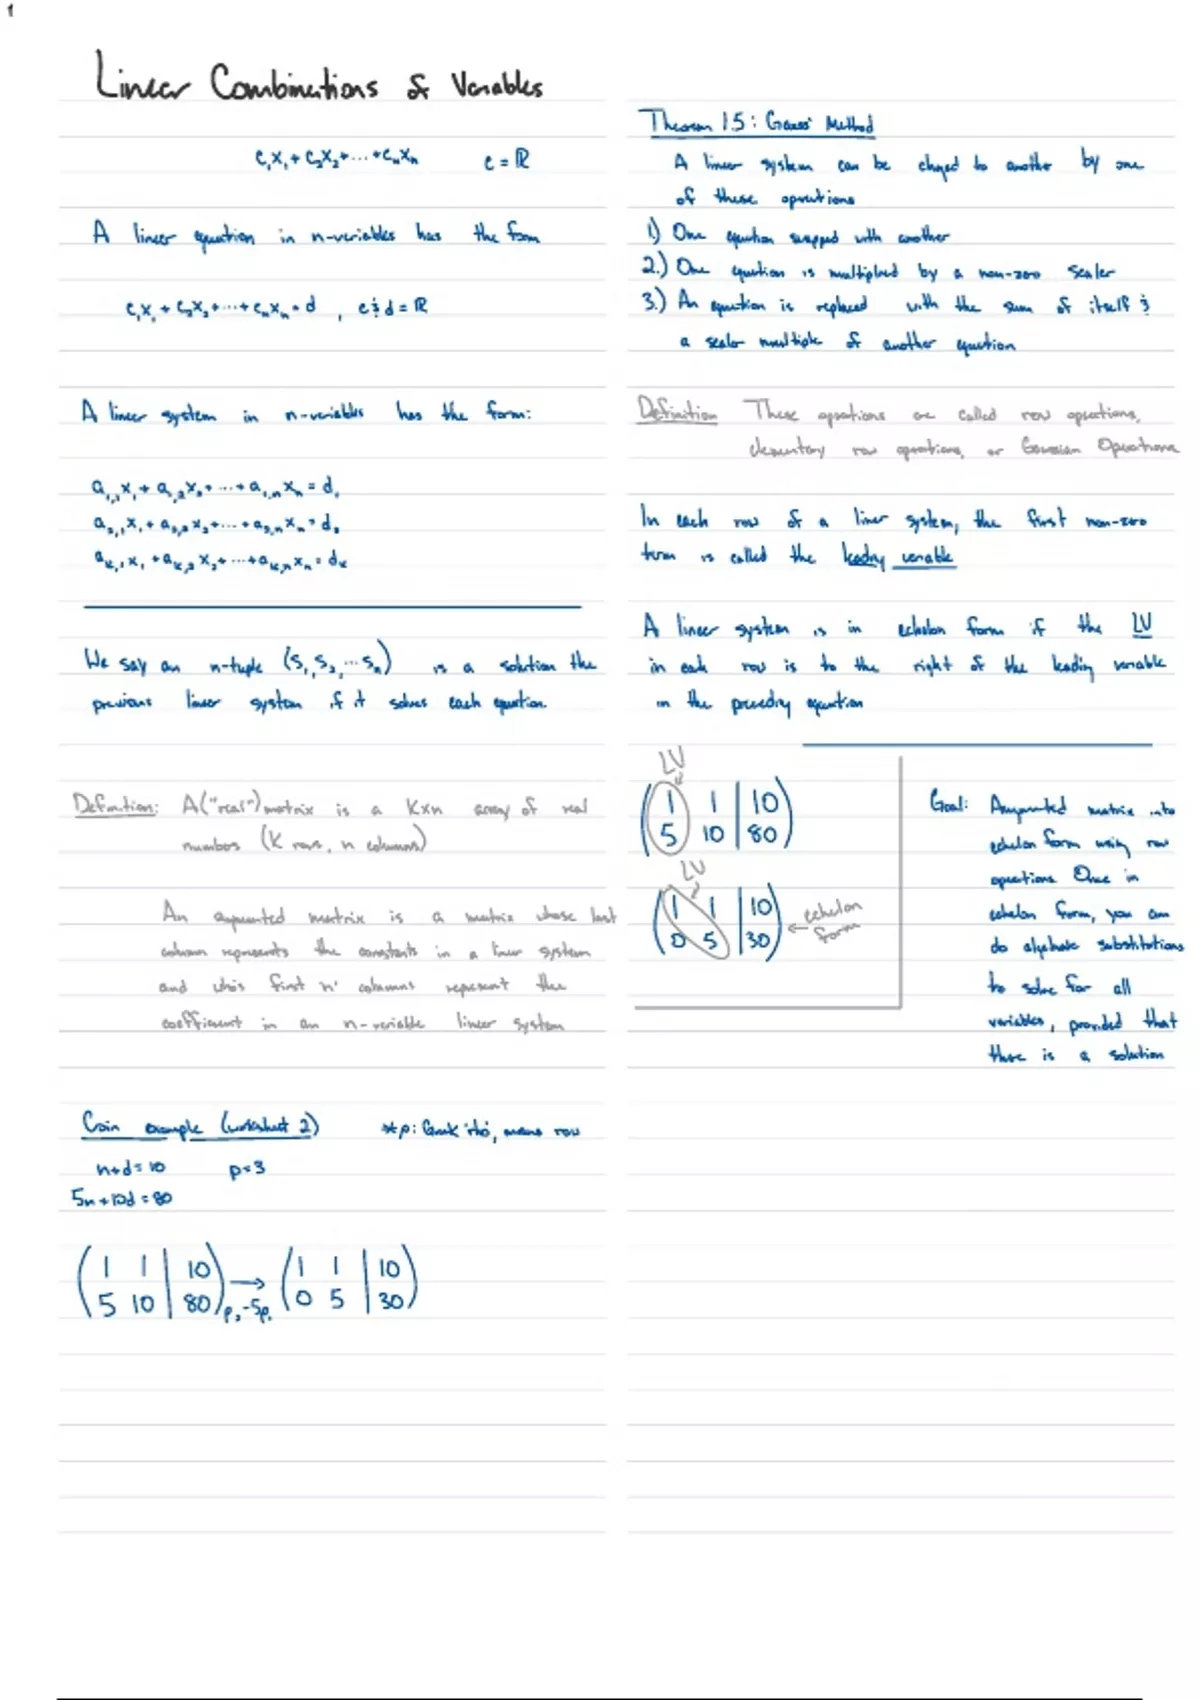 1
Linear Combinations of Variables
c₁x₁ + c₂x₂ + ... + cₙxₙ c = ℝ
A linear equation in n-variables has the form
c₁x₁ + c₂x₂ + ... + cₙxₙ = d, c & d = ℝ
A linear system in n-variables has the form:
a₁,₁x₁ + a₁,₂x₂ + ... + a₁,ₙxₙ = d₁
a₂,₁x₁ + a₂,₂x₂ + ... + a₂,ₙxₙ = d₂
aₖ,₁x₁ + aₖ,₂x₂ + ... + aₖ,ₙxₙ = dₖ
We say an n-tuple (s₁ s₂, ... sₙ) is a solution the
previous linear system if it solves each equation.
Definition: A ("real") matrix is a K×n array of real
numbers (K rows, n columns)
An augmented matrix is a matrix whose last
column represents the constants in a linear system
and who's first 'n' columns represent the
coefficient in an n-variable linear system
Coin example (worksheet 2) *ρ: Greek 'rho', means row
n+d=10 ρ=3
5n+10d=80
(1 1 | 10) → (1 1 | 10)
(5 10 | 80) ρ₂-5ρ₁ (0 5 | 30)
Theorem 1.5: Gauss' Method
A linear system can be changed to another by one
of these operations
1) One equation swapped with another
2.) One equation is multiplied by a non-zero scaler
3.) An equation is replaced with the sum of itself &
a scaler multiple of another equation
Definition These operations are called row operations,
elementary row operations, or Gaussian Operations
In each row of a liner system, the first non-zero
term is called the leading variable
A linear system is in echelon form if the LV
in each row is to the right of the leading variable
in the preceding equation
LV
(1 1 | 10)
(5 10 | 80)
LV
(1 1 | 10)
(0 5 | 30) ← echelon
form
Goal: Augmented matrix into
echelon form using row
operations Once in
echelon form, you can
do algebraic substitutions
to solve for all
variables, provided that
there is a solution